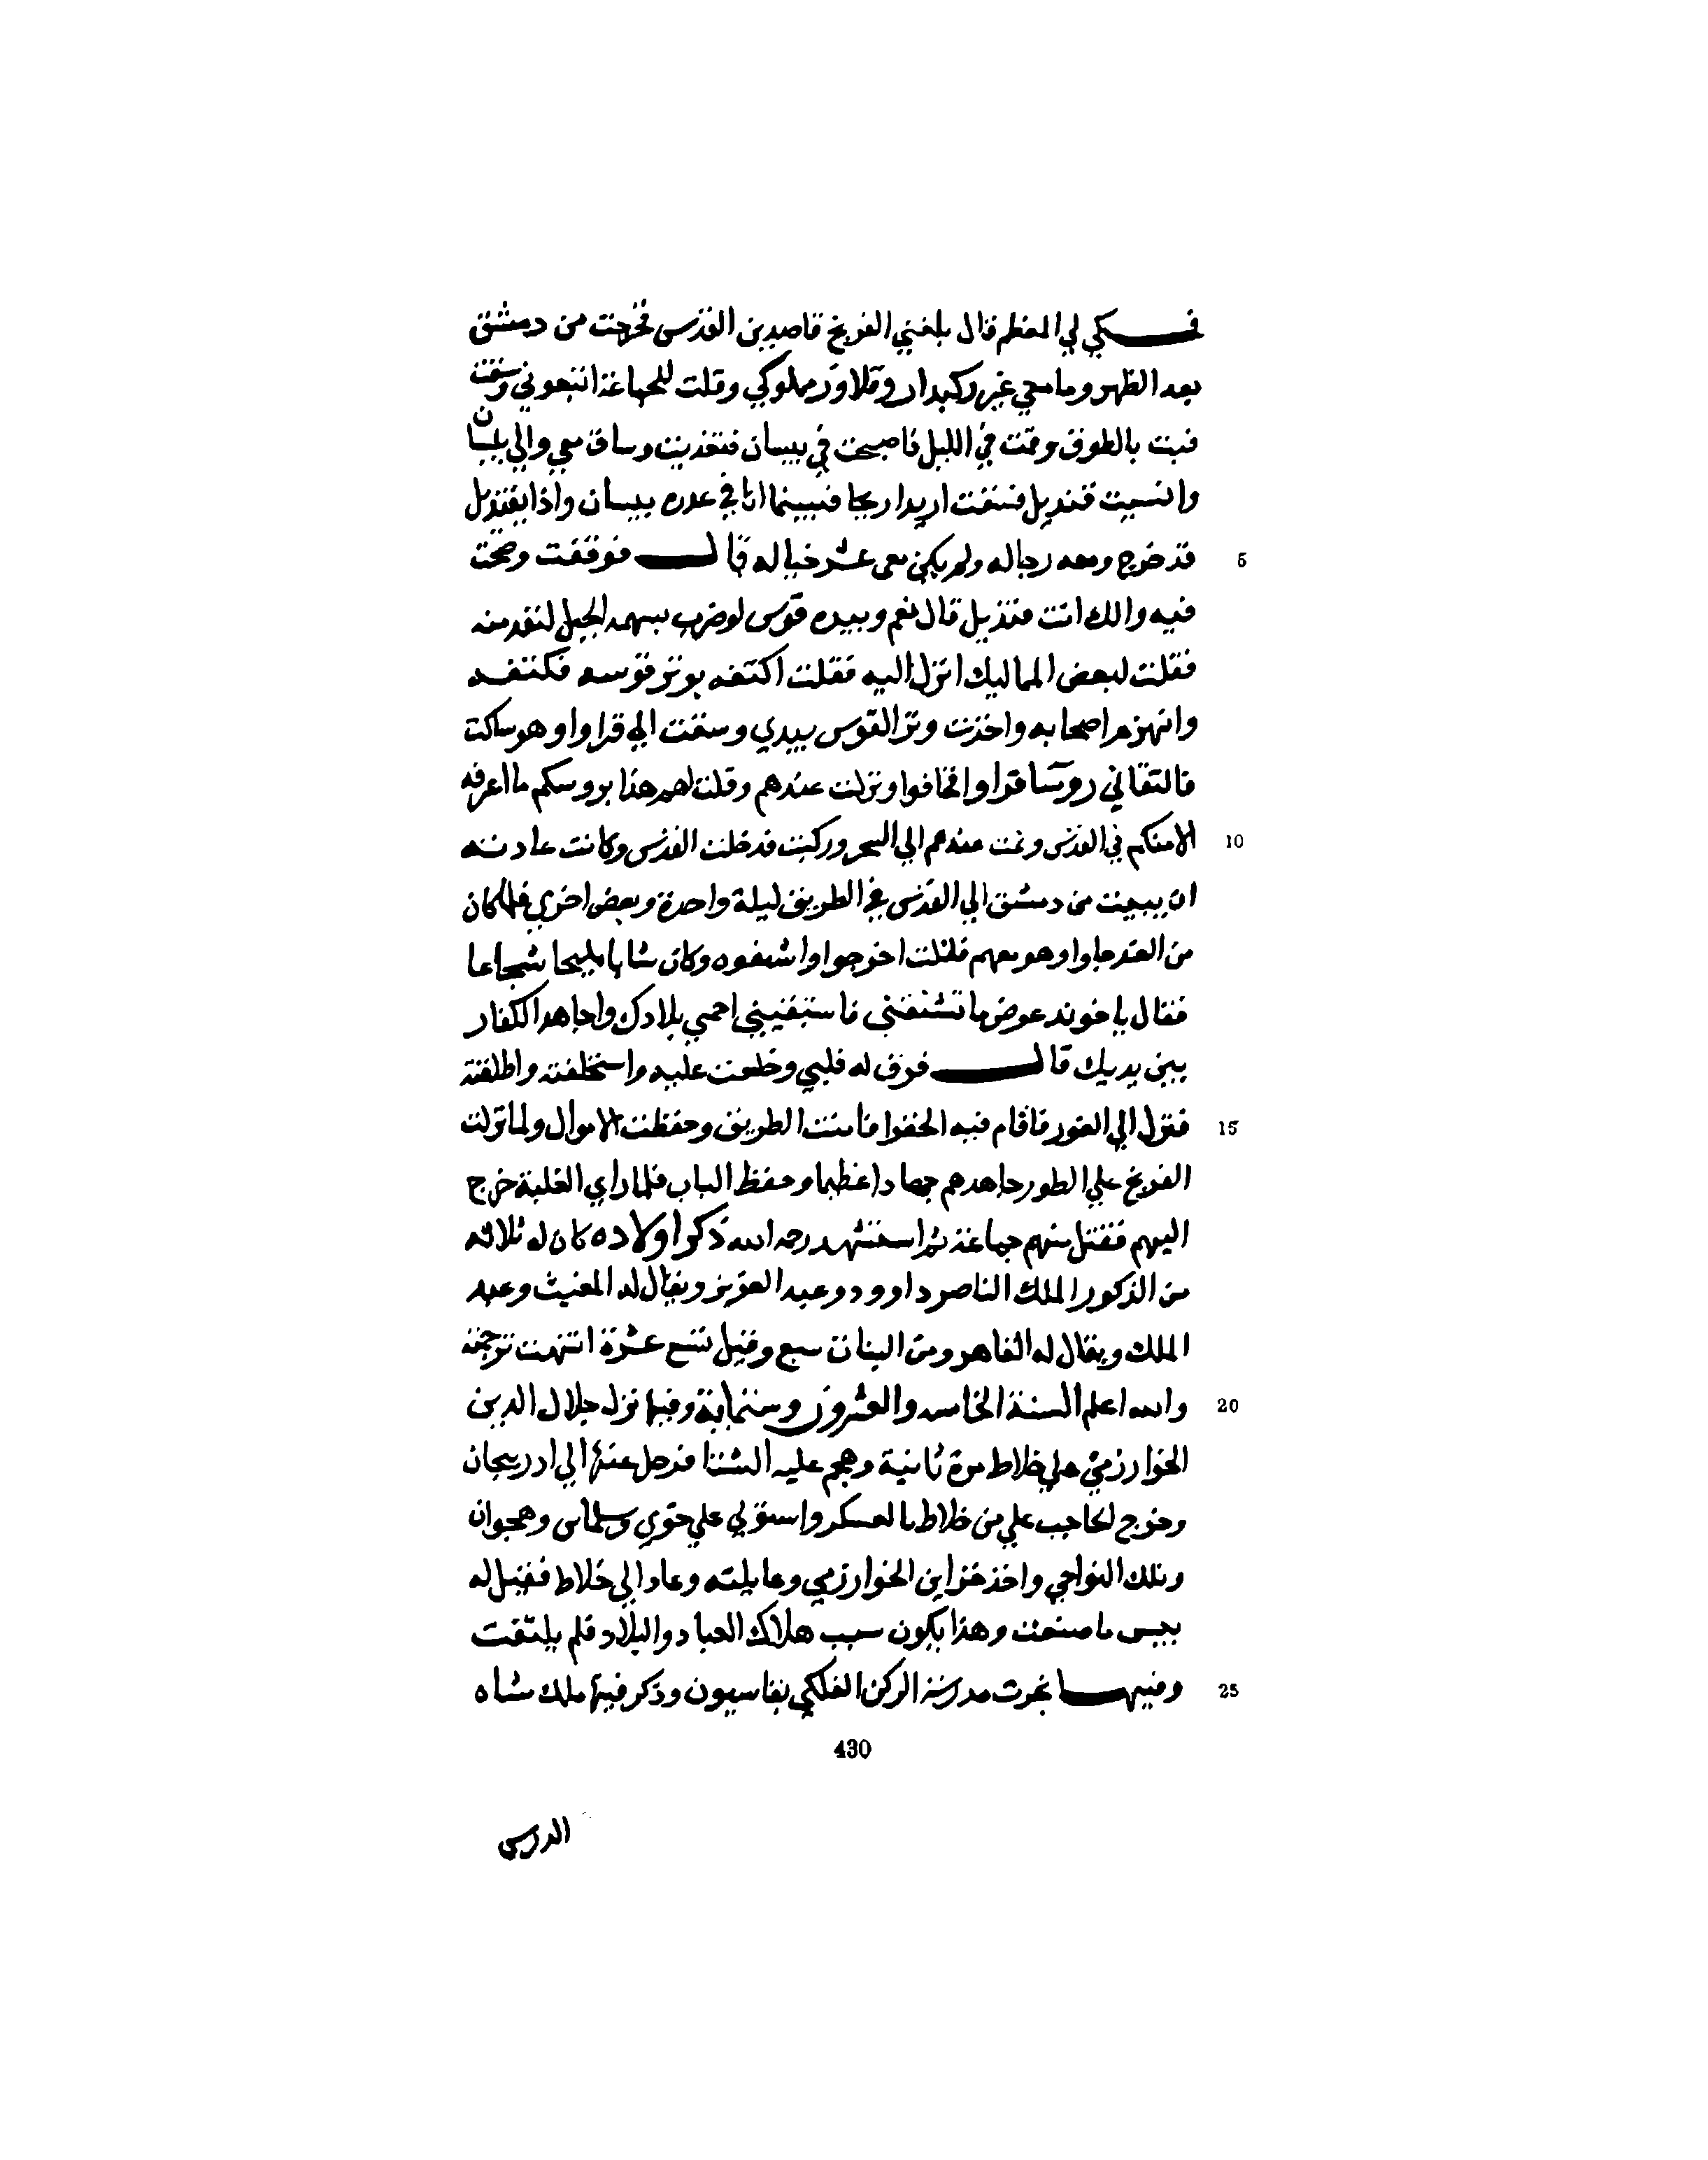 فحكي لي المعظم قال بلغني الفرنج قاصدين القدس فخرجت من دمشق
بعد الظهر وما معي غير ركبدار وقلاوز مملوكي وقلت للجماعة اتبعوني وسقت
فبت بالطوق وقمت في الليل فاصبحت في بيسان فتغديت وساق معي والي بيسان
وانسيت قنديل فسقت اريد اريحا فبينما انا في عدوه بيسان واذا بقنديل
قد خرج ومعه رجاله ولم يكن معي عشر خياله قال فوقفت وصحت
فيه والك انت قنديل قال نعم وبيده قوس لو ضرب بسهمه الجبل لنفد منه
فقلت لبعض المماليك انزل اليه فقلت اكتفه بوتر قوسه فكتفه
وانهزم اصحابه واخذت وتر القوس بيدي وسقت الي قراوا وهو ساكت
فالتقاني روسا قراوا فخافوا ونزلت عندهم وقلت لهم هذا بروسكم ما اعرفه
الا منكم في القدس ونمت عندهم الي السحر وركبت فدخلت القدس وكانت عادته
ان يبيت من دمشق الي القدس في الطريق ليلة واحدة وبعض اخري فلما كان
من الغد جاوا وهو معهم فقلت اخرجوا واشنقوه وكان شابا مليحا شجاعا
فقال يا خوند عوض ما تشنقني فاستبقيني احمي بلادك واجاهد الكفار
بين يديك قال فرق له قلبي وخلعت عليه واستحلفته واطلقته
فنزل الي الغور فاقام فيه الخفرا فامنت الطريق وحفظت الاموال ولما نزلت
الفرنج علي الطور جاهدهم جهادا عظيما وحفظ الباب فلما راي الغلبة خرج
اليهم فقتل منهم جماعة ثم استشهد رحمه الله ذكر اولاده كان له ثلاثه
من الذكور الملك الناصر داوود وعبد العزيز ويقال له المغيث وعبد
الملك ويقال له القاهر ومن البنات سبع وقيل تسع عشرة انتهت ترجمته
والله اعلم السنة الخامسه والعشرون وستماية وفيها نزل جلال الدين
الخوارزمي علي خلاط مرة ثانية وهجم عليه الشتا فرحل عنها الي ادربيجان
وخرج الحاجب علي من خلاط بالعسكر واستولي علي خوي وسلماس وهجوان
وتلك النواحي واخذ خزاين الخوارزمي وعايلته وعاد الي خلاط فقيل له
بيس ما صنعت وهذا يكون سبب هلاك العباد والبلاد فلم يلتفت
وفيها نجزت مدرسة الركن الفلكي بقاسيون وذكر فيها ملك شاه
430
الدرس
5
10
15
20
25